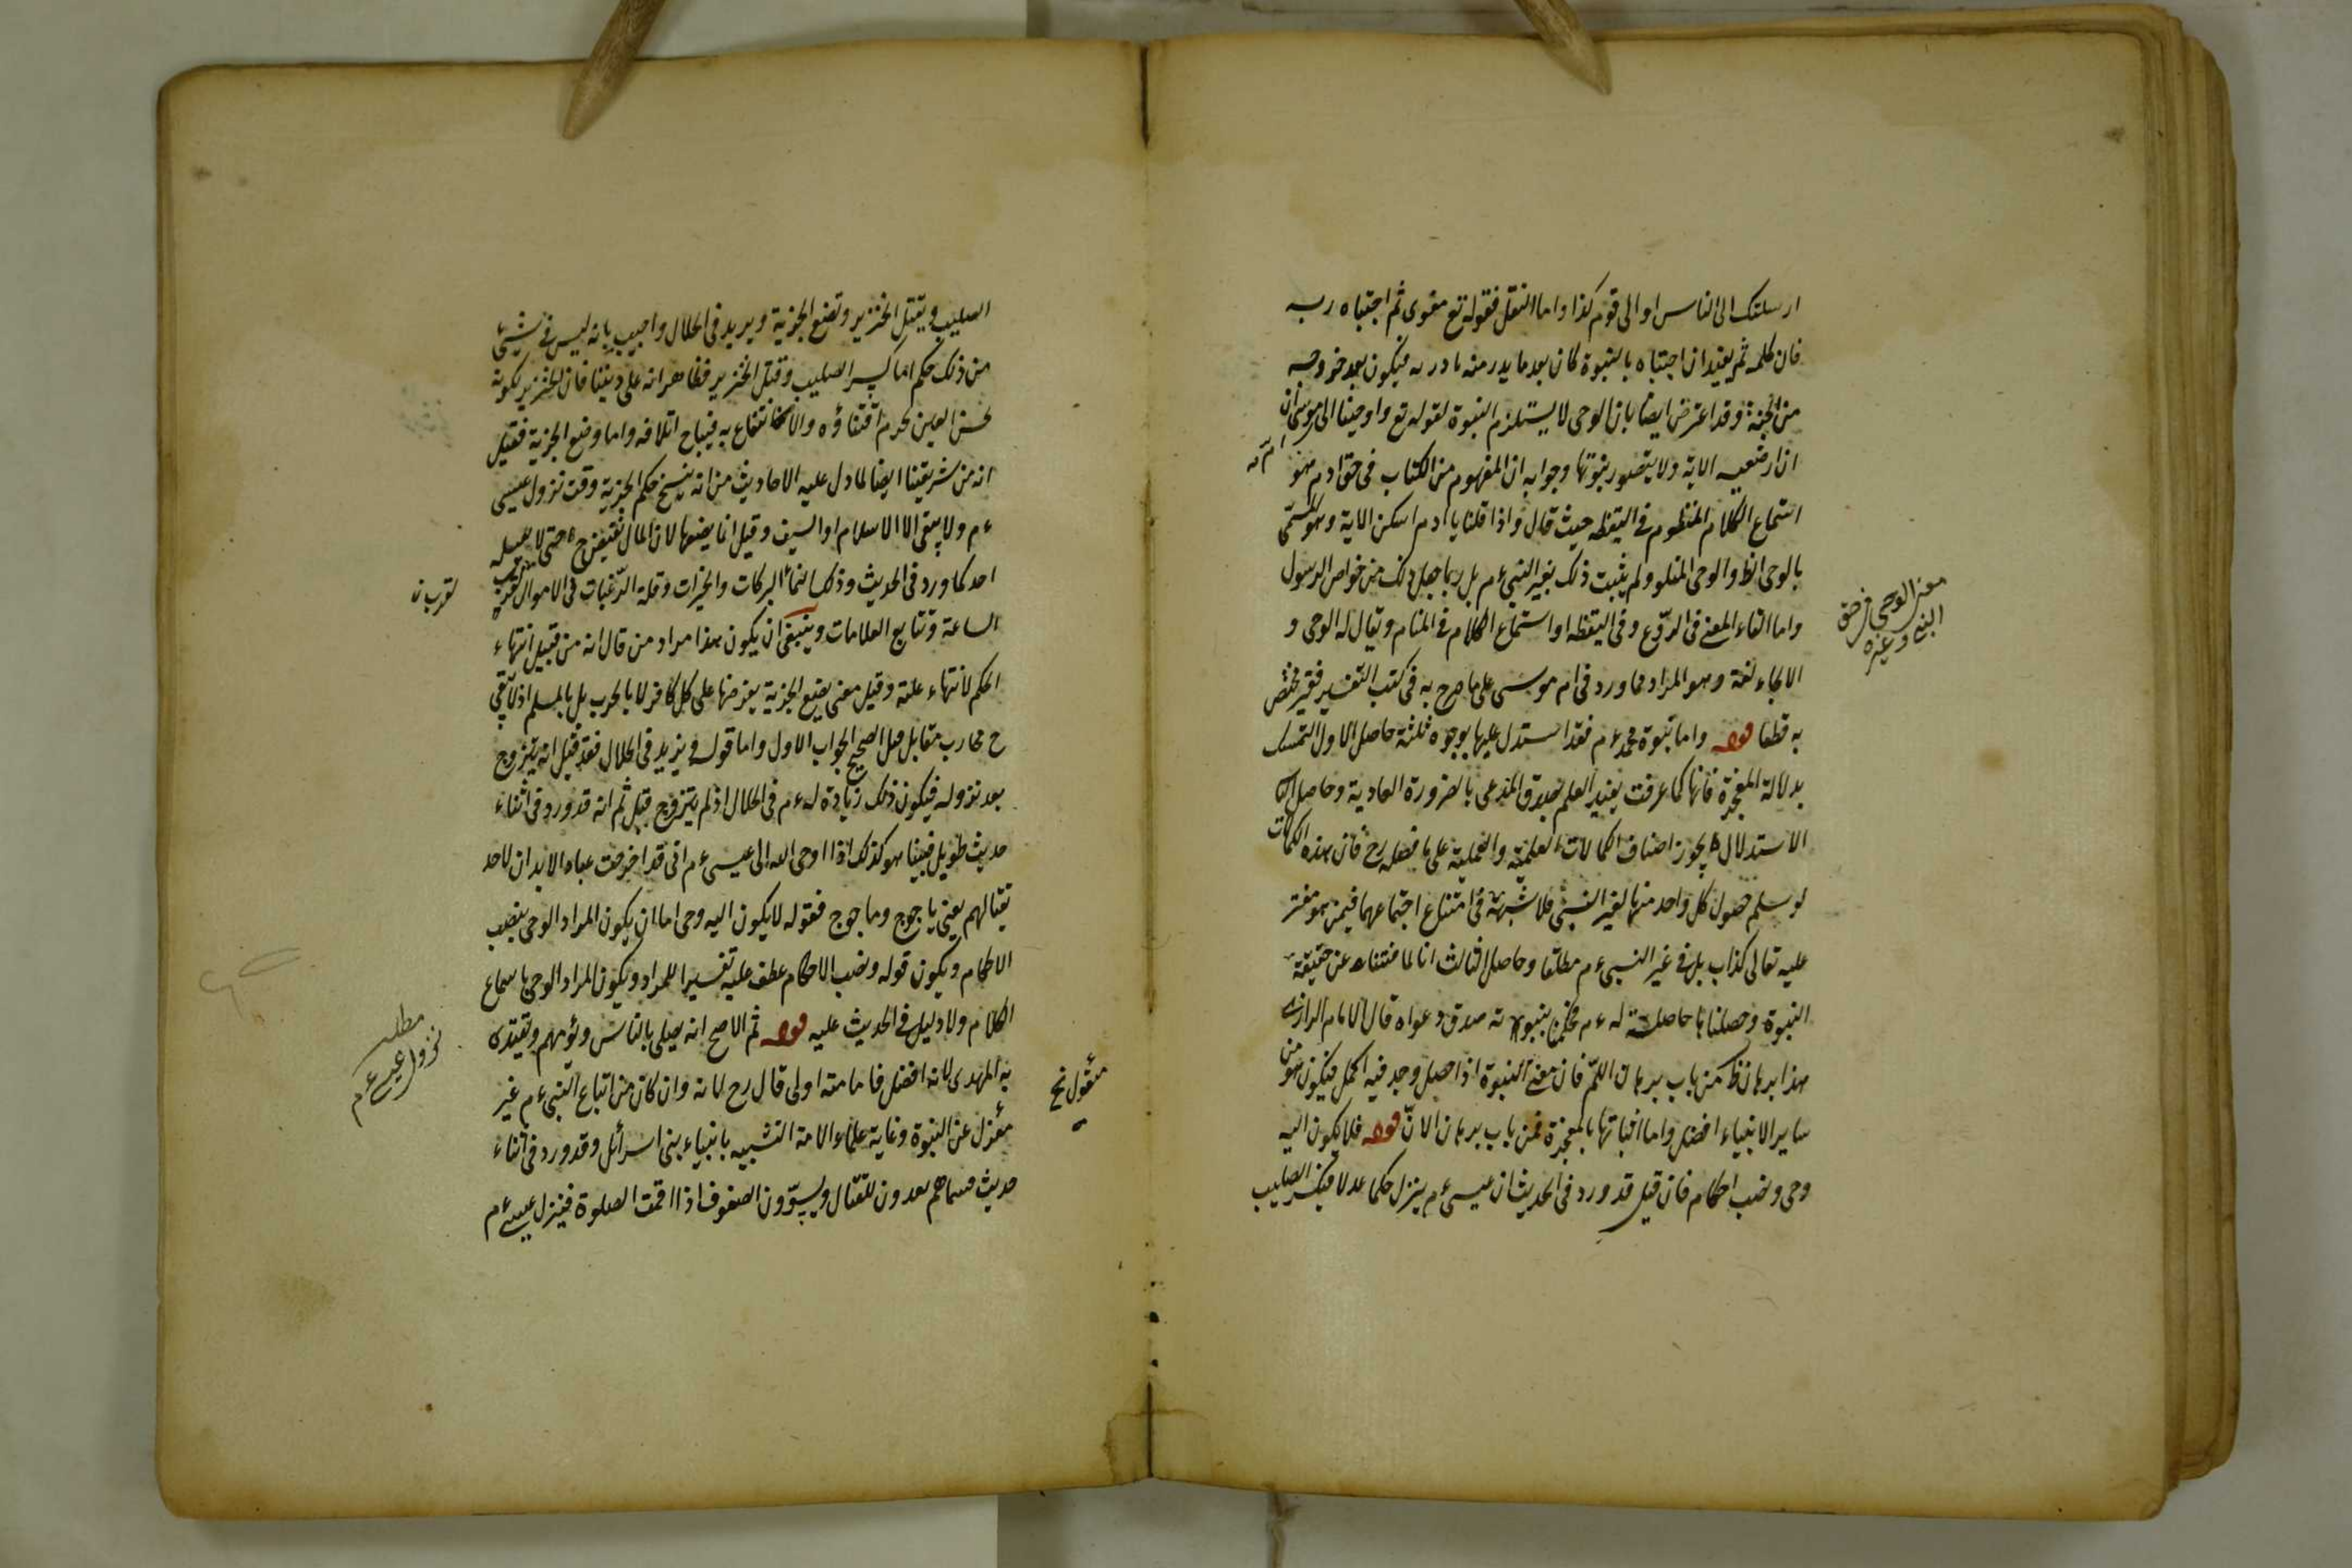 ارسلتك الى الناس او الى قوم كذا واما النقل فقوله تع فغوى ثم اجتباه ربه
فان كلمة ثم يفيد ان اجتباه بالنبوة كان بعد ما يدر منه بادره فيكون بعد خروجه
من الجنة وقد اعترض ايضا بان الوحى لا يستلزم النبوة لقوله تع واوحينا الى موسى ان
ان ارضعيه الاية ولا يتصور بنوتها وجوابه ان المفهوم من الكتاب فى حق ادم هو
استماع الكلام المنظوم فى اليقظه حيث قال واذا قلنا يا ادم اسكن الاية وهو المسمى
بالوحى الظ والوحى المتلو ولم يثبت ذلك بغير النبى ءم بل ربما جعل ذلك من خواص الرسول
واما القاء المعنى فى الروع وفى اليقظه او استماع الكلام فى المنام ويقال له الوحى و
الايحاء لغة وهو المراد مما ورد فى ام موسى على ما صرح به فى كتب التفسير فغير مختص
به قطعا قوله واما نبوة محمد ءم فقد استدل عليها بوجوه ثلثة حاصل الاول التمسك
بدلالة المعجزة فانها كما عرفت يفيد العلم بصدق المدعى بالضرورة العادية وحاصل
الاستدلال بحوز اصناف الكمالات العلمية والعملية على ما فصله رح فان هذه الكمالات
لو سلم حصول كل واحد منها لغير النبى فلا شبهة فى امتناع اجتماعهما فيمن هو مفتر
عليه تعالى كذاب بل فى غير النبى ءم مطلقا وحاصل الثالث انا لما فتشناه عن حقيقة
النبوة وحصلنا حاصلة له ءم فحكمنا بنبوته صدق دعواه قال الامام الرازى
هذا برهان ظ من باب برهان اللم فان معنى النبوة اذا حصل وجد فيه اكمل فيكون هو من
ساير الانبياء افضل واما اثباتها بالمعجزة فمن باب برهان الان قوله فلا يكون اليه
وحى ونصب احكام فان قيل قد ورد فى الحديث ان عيسى ءم ينزل حكما عدلا فيكسر الصليب
معنى الوحى فى حق
النبى وغيره
الصليب ويقتل الخنزير وتضع الجزية ويريد فى الحلال واجيب بانه ليس فى شئ
من ذلك حكم اما كسر الصليب وقتل الخنزير فظاهر انه على ديننا فان الخنزير لكونه
نجس العين يحرم اقتناؤه والانتفاع به فيباح اتلافه واما وضع الجزية فقيل
انه من شريعتنا ايضا لما دل عليه الاحاديث من انه ينسخ حكم الجزية وقت نزول عيسى
ءم ولا يبقى الا الاسلام او السيف وقيل انما يضعها لان المال يفيض ح حتى لا يقبله
احد كما ورد فى الحديث وذلك لنماء البركات والخيرات وقلة الرغبات فى الاموال لقرب
الساعة وتتابع العلامات وينبغى ان يكون هذا مراد من قال انه من قبيل انتهاء
الحكم لانتهاء علته وقيل معنى يضع الجزية يفرضها على كل كافر لا بالحرب بل بالمسلم اذ لا يبقى
ح محارب مقابل الصحيح الجواب الاول واما قوله ويزيد فى الحلال فقد قيل انه يتزوج
بعد نزوله فيكون ذلك زيادة له ءم فى الحلال اذ لم يتزوج قبل ثم انه قد ورد فى اثناء
حديث طويل فبينا هو كذلك اذا اوحى الله الى عيسى ءم انى قد اخرجت عبادا لا يدان لاحد
بقتالهم يعنى ياجوج وماجوج فقوله لا يكون اليه وحى اما ان يكون المراد الوحى بنصب
الاحكام ويكون قوله ونصب الاحكام عطف عليه تفسيرا للمراد ويكون المراد الوحى باسماع
الكلام ولا دليل فى الحديث عليه قوله ثم الاصح انه يصلى بالناس ويؤمهم ويقتدى
به المهدى لانه افضل فامامته اولى قال رح لانه وان كان من اتباع النبى ءم غير
معزل عن النبوة وغاية علماء الامة التشبيه بانبياء بنى اسرائل وقد ورد فى اثناء
حديث يعدون للقتال ويسوون الصفوف اذا اقمت الصلوة فينزل عيسى ءم
مطلب
نزول عيسى ءم